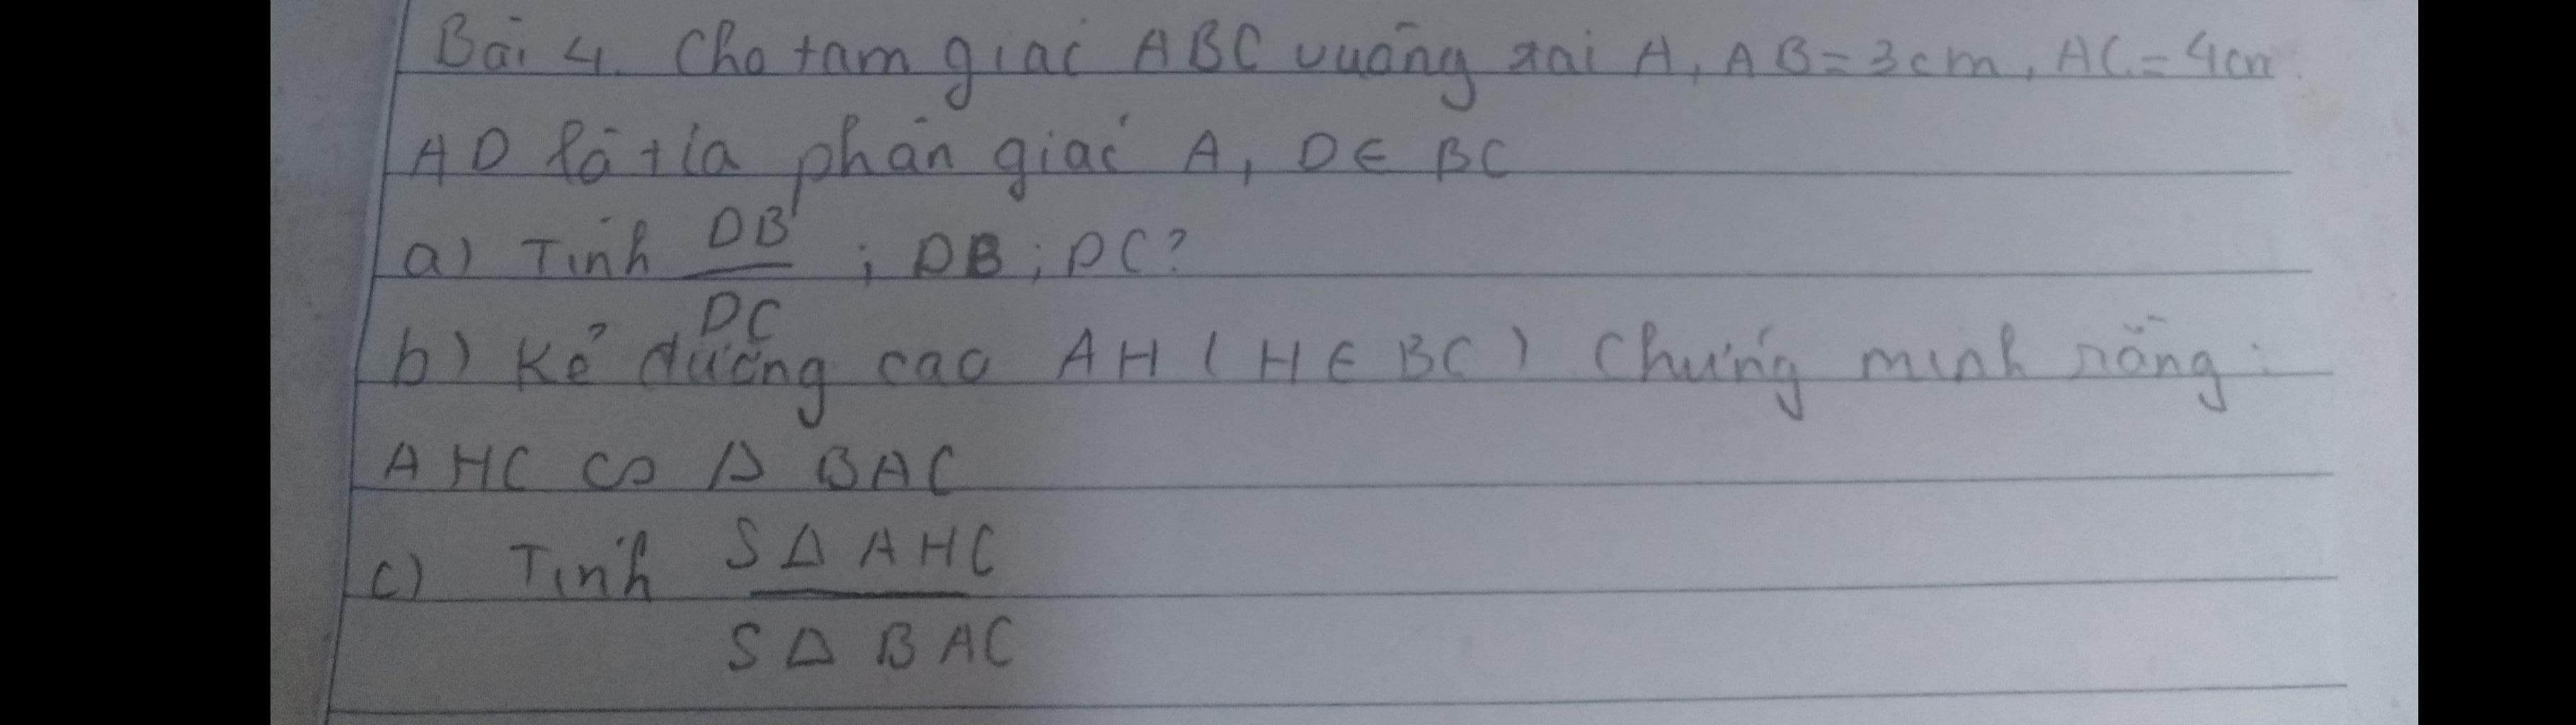 Bài 4. Cho tam giác ABC vuông tại A, AB = 3cm, AC = 4cm
AD là tia phân giác A, D ∈ BC
a) Tính DB/DC ; DB ; DC ?
b) Kẻ đường cao AH ( H ∈ BC ) Chứng minh rằng :
AHC ∽ Δ BAC
c) Tính SΔ AHC / SΔ BAC